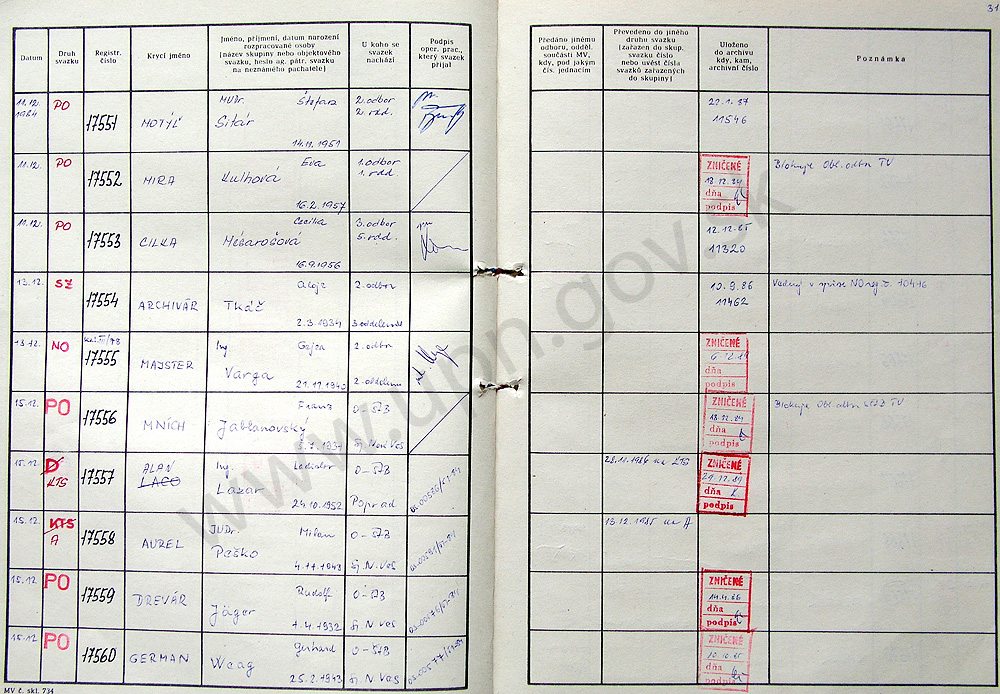 31
Datum
Druh svazku
Registr. číslo
Krycí jméno
Jméno, příjmení, datum narození
rozpracované osoby
(název skupiny nebo objektového
svazku, heslo ag. pátr. svazku
na neznámého pachatele)
U koho se
svazek
nachází
Podpis
oper. prac.,
který svazek
přijal
Předáno jinému
odboru, odděl.
součásti MV,
kdy, pod jakým
čís. jednacím
Převedeno do jiného
druhu svazku
(zařazen do skup.
svazku číslo
nebo uvést čísla
svazků zařazených
do skupiny)
Uloženo
do archivu
kdy, kam,
archivní číslo
Poznámka
11.12. 1984 PO 17551 MOTÝĽ MUDr. Štefan
Sitár
14.11.1951
2. odbor
2. odd.
22.1.87
11546
11.12. PO 17552 MIRA Eva
Kulhová
16.2.1957
1. odbor
1. odd.
ZNIČENÉ
18.12.
dňa
podpis
Blokuje Obl. odbor TV
11.12. PO 17553 CILKA Cecília
Mésarošová
16.9.1956
3. odbor
5. odd.
12.12.85
11320
13.12. 17554 ARCHIVÁR Alojz
Tkáč
2.3.1934
2. odbor
3 oddelenie
10.9.86
11462
Vedený v spise NO reg. č. 10476
13.12. NO 17555 MAJSTER Ing Gejza
Varga
2. odbor
2. oddelenie
ZNIČENÉ
dňa
podpis
15.12. PO 17556 MNÍCH Franz
Jablanovsky
O-ŠtB
Sp. Nová Ves
ZNIČENÉ
18.12.
dňa
podpis
15.12. D KTS 17557 ALAN
LACO
Ing. Ladislav
Lazar
24.10.1952
O-ŠtB
Poprad
28.11.1986 na KTS
ZNIČENÉ
dňa
podpis
15.12. KTS A 17558 AUREL JUDr. Milan
Peško
4.11.1943
O-ŠtB
Sp. N. Ves
13.12.1985 na A
15.12. PO 17559 DREVÁR Rudolf
Jäger
7.4.1932
O-ŠtB
Sp. N Ves
ZNIČENÉ
dňa
podpis
15.12. PO 17560 GERMAN Gerhard
Waag
25.2.1943
O-ŠtB
Sp. N Ves
ZNIČENÉ
10.10.85
dňa
podpis
MV č. skl. 734
www.upn.gov.sk